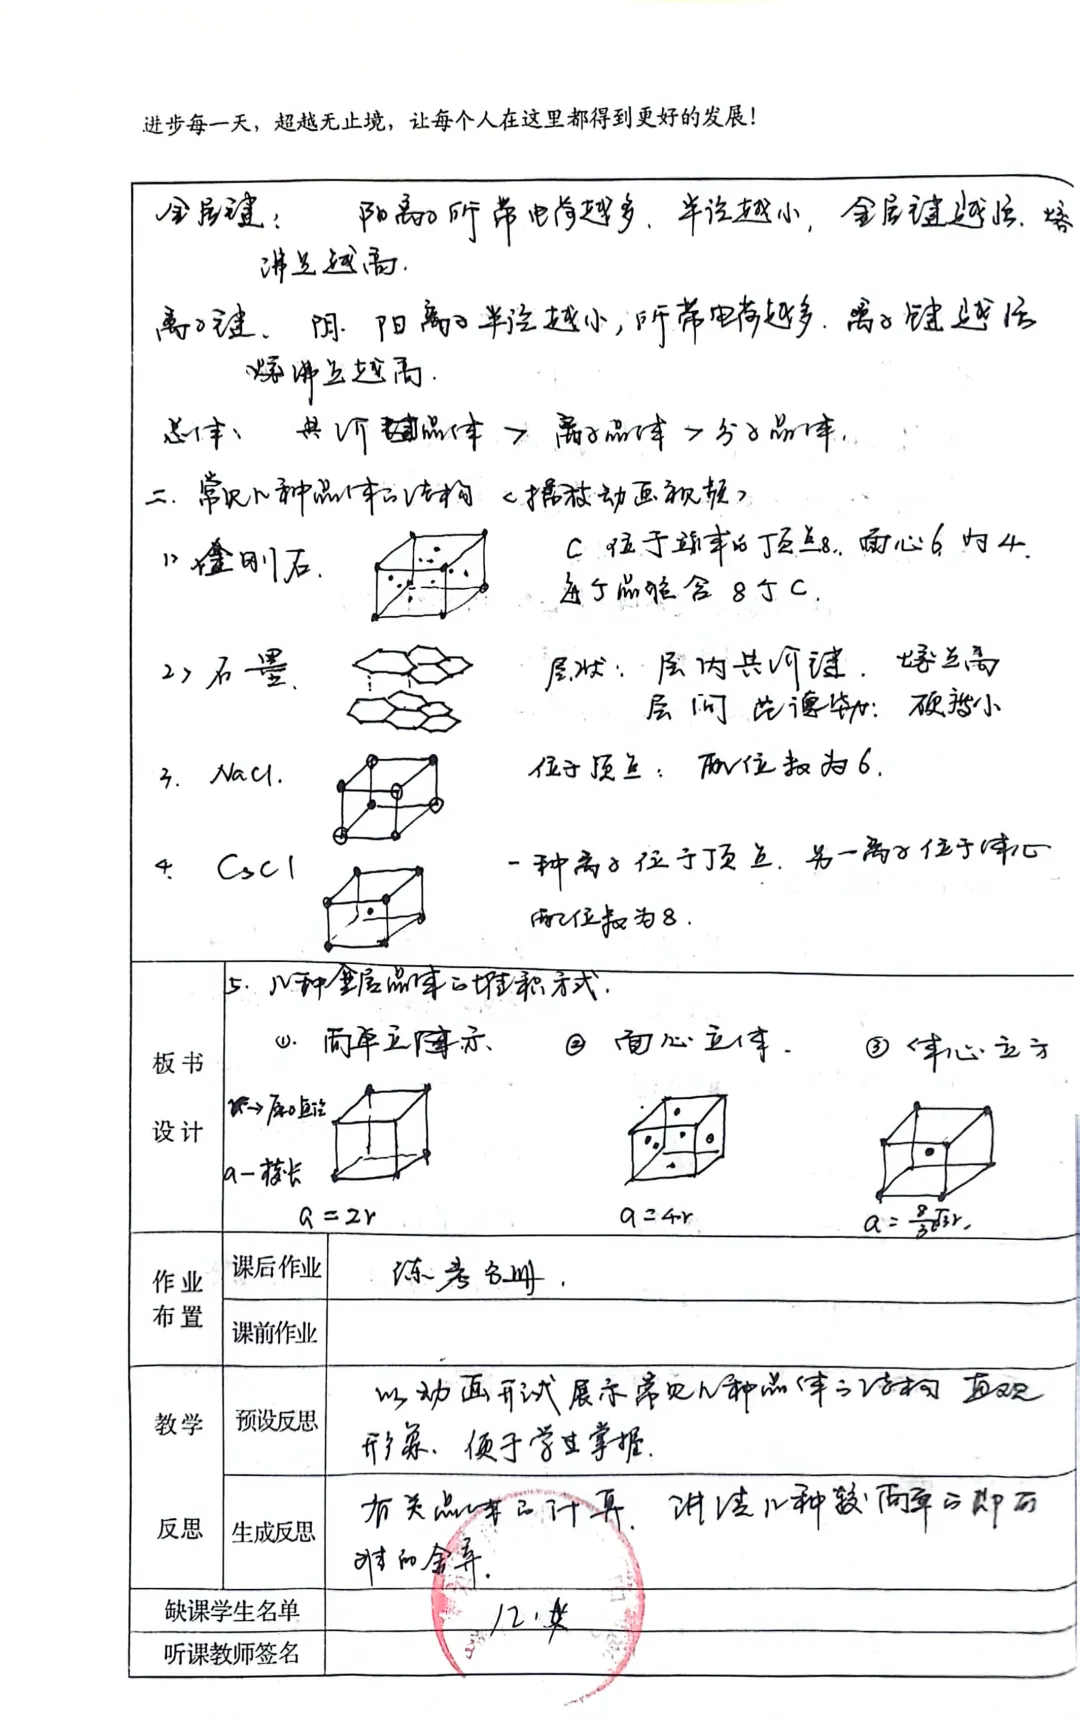 进步每一天，超越无止境，让每个人在这里都得到更好的发展！
金属键： 阳离子所带电荷越多．半径越小，金属键越强．熔
沸点越高．
离子键、 阴．阳离子半径越小，所带电荷越多．离子键越强
熔沸点越高．
总体、 共价晶体 > 离子晶体 > 分子晶体．
二．常见几种晶体的结构 <播放动画视频>
1> 金刚石． C 位于立体的顶点8．面心6 内4．
每个晶胞含8个C．
2> 石墨． 层状：层内共价键．熔点高
层间 范德华力：硬度小
3． NaCl． 位于顶点： 配位数为6．
4． CsCl 一种离子位于顶点．另一离子位于体心
配位数为8．
板书
设计
5．几种金属晶体的堆积方式．
①．简单立体 ② 面心立体． ③ 体心立方
r→
a－棱长
a=2r a=4r a=8/3√3r．
作业
布置
课后作业
练考分册．
课前作业
教学
反思
预设反思
以动画形式展示常见几种晶体的结构 直观
形象、便于学生掌握．
生成反思
有关晶体的计算．讲清几种较简单的即可
缺课学生名单
听课教师签名